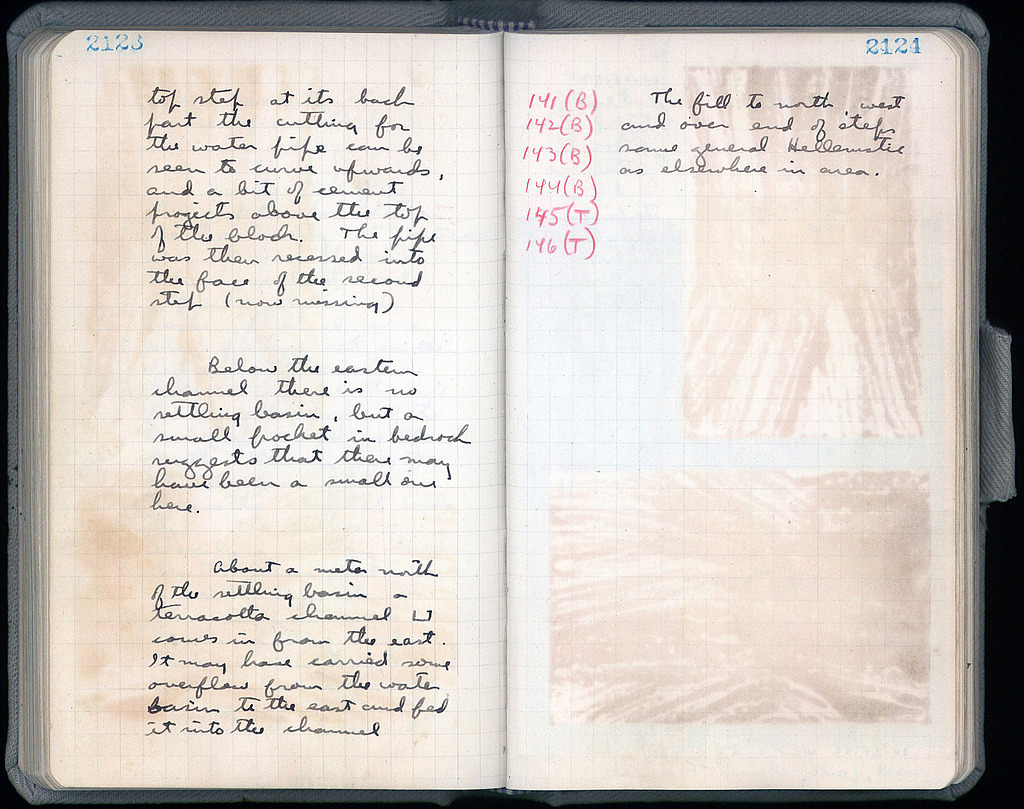 2123
top step at its back
part the cutting for
the water pipe can be
seen to curve upwards,
and a bit of cement
projects above the top
of the block. The pipe
was then recessed into
the face of the second
step (now missing)
Below the eastern
channel there is no
settling basin, but a
small pocket in bedrock
suggests that there may
have been a small one
here.
About a meter north
of the settling basin a
terracotta channel ⊔
comes in from the east.
It may have carried some
overflow from the water
basin to the east and fed
it into the channel
2124
141 (B)
142 (B)
143 (B)
144 (B)
145 (T)
146 (T)
The fill to north, west
and over end of steps
same general Hellenistic
as elsewhere in area.